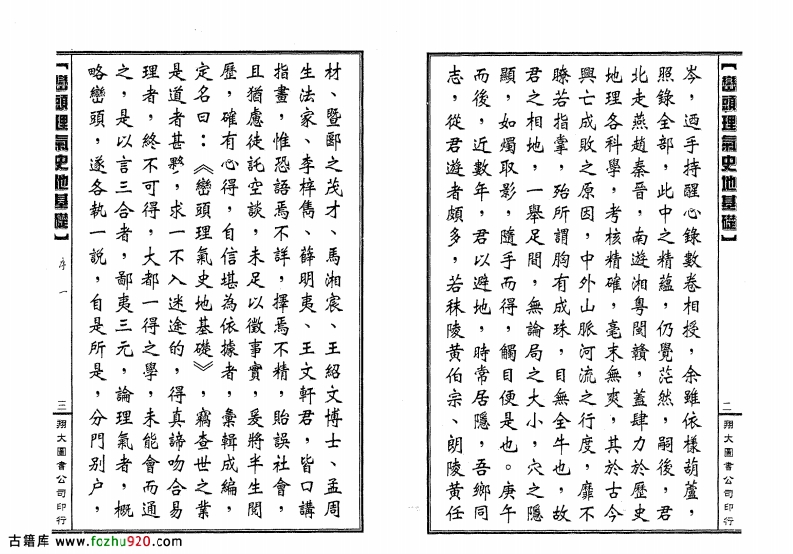 【巒頭理氣史地基礎】
岑，迺手持醒心錄數卷相授，余雖依樣葫蘆，
照錄全部，此中之精蘊，仍覺茫然，嗣後，君
北走燕趙秦晉，南遊湘粵閩贛，蓋肆力於歷史
地理各科學，考核精確，毫末無爽，其於古今
興亡成敗之原因，中外山脈河流之行度，靡不
瞭若指掌，殆所謂胸有成珠，目無全牛也，故
君之相地，一舉足間，無論局之大小，穴之隱
顯，如燭取影，隨手而得，觸目便是也。庚午
而後，近數年，君以避地，時常居隱，吾鄉同
志，從君遊者頗多，若秣陵黃伯宗、朗陵黃任
二
翔大圖書公司印行
【巒頭理氣史地基礎】
序一
材、暨鄙之茂才、馬湘宸、王紹文博士、孟周
生法家、李梓雋、薛明夷、王文軒君，皆口講
指畫，惟恐語焉不詳，擇焉不精，貽誤社會，
且猶慮徒託空談，未足以徵事實，爰將半生閱
歷，確有心得，自信堪為依據者，彙輯成編，
定名曰：《巒頭理氣史地基礎》，竊查世之業
是道者甚夥，求一不入迷途的，得真諦吻合易
理者，終不可得，大都一得之學，未能會而通
之，是以言三合者，鄙夷三元，論理氣者，概
略巒頭，遂各執一說，自是所是，分門別戶，
三
翔大圖書公司印行
古籍库 www.fozhu920.com